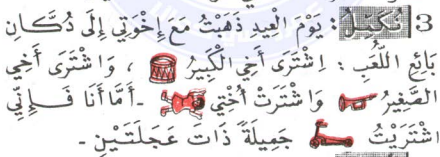 3 نُكَمِّلُ : يَوْمَ الْعِيدِ ذَهَبْتُ مَعَ إِخْوَتِي إِلَى دُكَّانِ
بَائِعِ اللُّعَبِ : اِشْتَرَى أَخِي الْكَبِيرُ ، وَاشْتَرَى أَخِي
الصَّغِيرُ وَاشْتَرَتْ أُخْتِي . أَمَّا أَنَا فَإِنِّي
اشْتَرَيْتُ جَمِيلَةً ذَاتَ عَجَلَتَيْنِ .